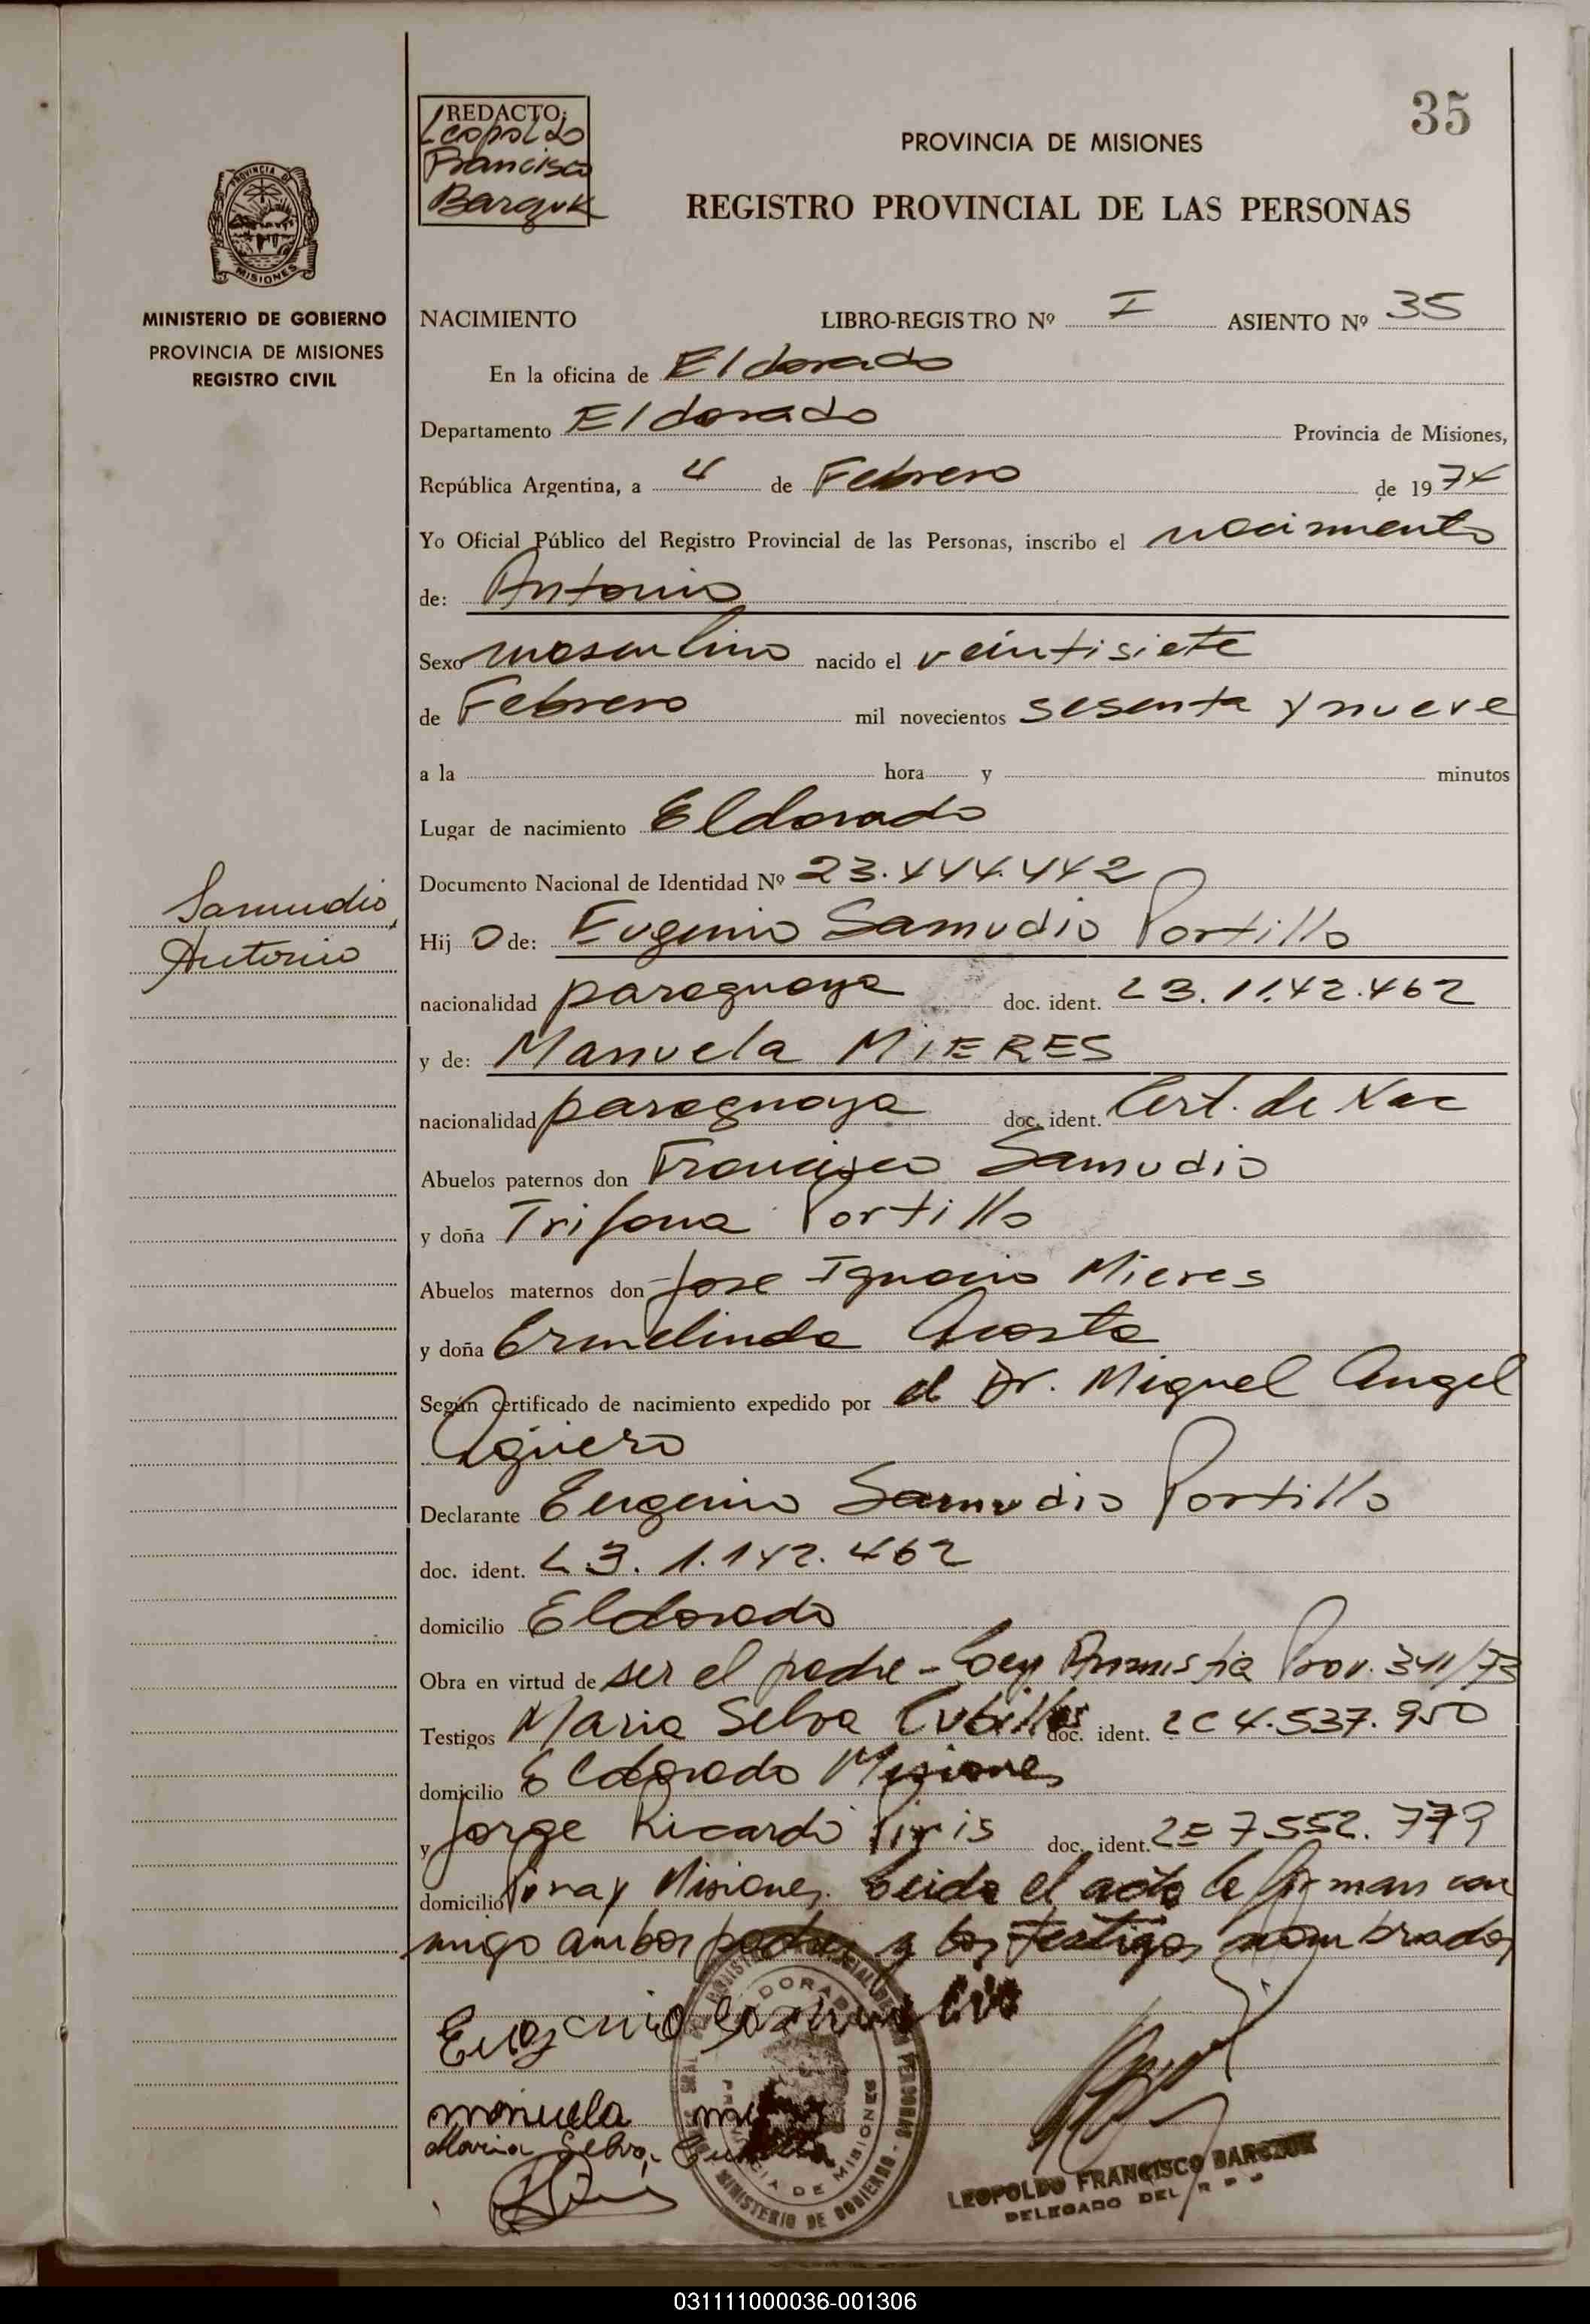 35
REDACTO:
Leopoldo
Francisco
Barczuk
PROVINCIA DE MISIONES
REGISTRO PROVINCIAL DE LAS PERSONAS
PROVINCIA DE
MISIONES
MINISTERIO DE GOBIERNO
PROVINCIA DE MISIONES
REGISTRO CIVIL
NACIMIENTO LIBRO-REGISTRO Nº I ASIENTO Nº 35
En la oficina de Eldorado
Departamento Eldorado Provincia de Misiones,
República Argentina, a 4 de Febrero de 1974
Yo Oficial Público del Registro Provincial de las Personas, inscribo el nacimiento
de: Antonio
Sexo masculino nacido el veintisiete
de Febrero mil novecientos sesenta y nueve
a la hora y minutos
Lugar de nacimiento Eldorado
Documento Nacional de Identidad Nº 23.444.442
Samudio,
Antonio
Hij o de: Eugenio Samudio Portillo
nacionalidad paraguaya doc. ident.
y de: Manuela MiERES
nacionalidad paraguaya doc. ident. Cert. de Nac
Abuelos paternos don Francisco Samudio
y doña Trifona Portillo
Abuelos maternos don Jose Ignacio Mieres
y doña Ermelinda Acosta
Según certificado de nacimiento expedido por el Dr. Miguel Angel
Agüero
Declarante Eugenio Samudio Portillo
doc. ident. 1.142.462
domicilio Eldorado
Obra en virtud de ser el padre - Ley Amnistia Prov. 341/73
Testigos Maria Selva Cubillas doc. ident. LC 4.537.950
domicilio Eldorado Misiones
y Jorge Ricardo Piris doc. ident. LE 7552.779
domicilio Misiones. Leida el acta la firman con
migo ambos padres y los testigos nombrados
Eugenio Samudio
manuela
Maria Selva
ELDORADO
PROVINCIA DE MISIONES
MINISTERIO DE GOBIERNO
LEOPOLDO FRANCISCO BARCZUK
DELEGADO DEL R P P
031111000036-001306